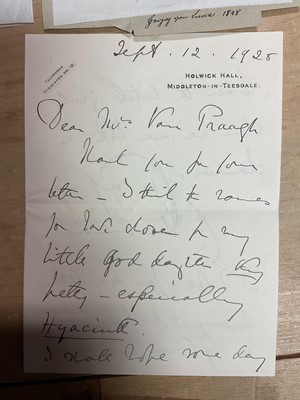 1848
Sept. 12. 1925
TELEPHONE
HOLWICK HALL,
MIDDLETON-IN-TEESDALE.
Dear Mrs Van Praagh
Thank you for your
letter – I think the names
you have chosen for my
little god daughter very
pretty – especially
Hyacinth.
I shall hope some day